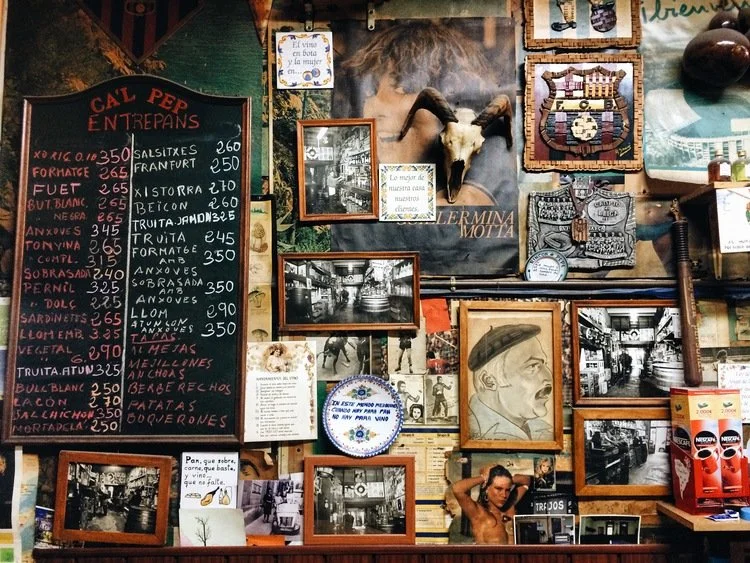 CA'L PEP
ENTREPANS
XORIÇO.IB 350
FORMATGE 265
FUET 265
BUT.BLANC. 265
" NEGRA 265
ANXOVES 345
TONYINA 265
" COMPL. 315
SOBRASADA 240
PERNIL 325
" DOLÇ 225
SARDINETES 265
LLOM EMB. 325
VEGETAL 290
TRUITA.ATUN 325
BULL BLANC 250
LACON 270
SALCHICHON 350
MORTADELA 250
SALSITXES 260
FRANFURT 250
XISTORRA 270
BEICON 260
TRUITA.JAMON 325
TRUITA 245
FORMATGE
AMB 350
ANXOVES
SOBRASADA
AMB 350
ANXOVES
LLOM 290
ATUN CON
ANXOVES 350
TAPAS
ALMEJAS
MEJILLONES
ANCHOAS
BERBERECHOS
PATATAS
BOQUERONES
El vino
en bota
y la mujer
en...
Lo mejor de
nuestra casa
nuestros
clientes.
GUILLERMINA
MOTTA
F.C.B
bienveni
EN ESTE MUNDO MEZQUINO
CUANDO HAY PARA PAN
NO HAY PARA VINO
Pan, que sobre,
carne, que baste,
y vino...
que no falte.
TRAJOS
NESCAFÉ
NESCAFÉ